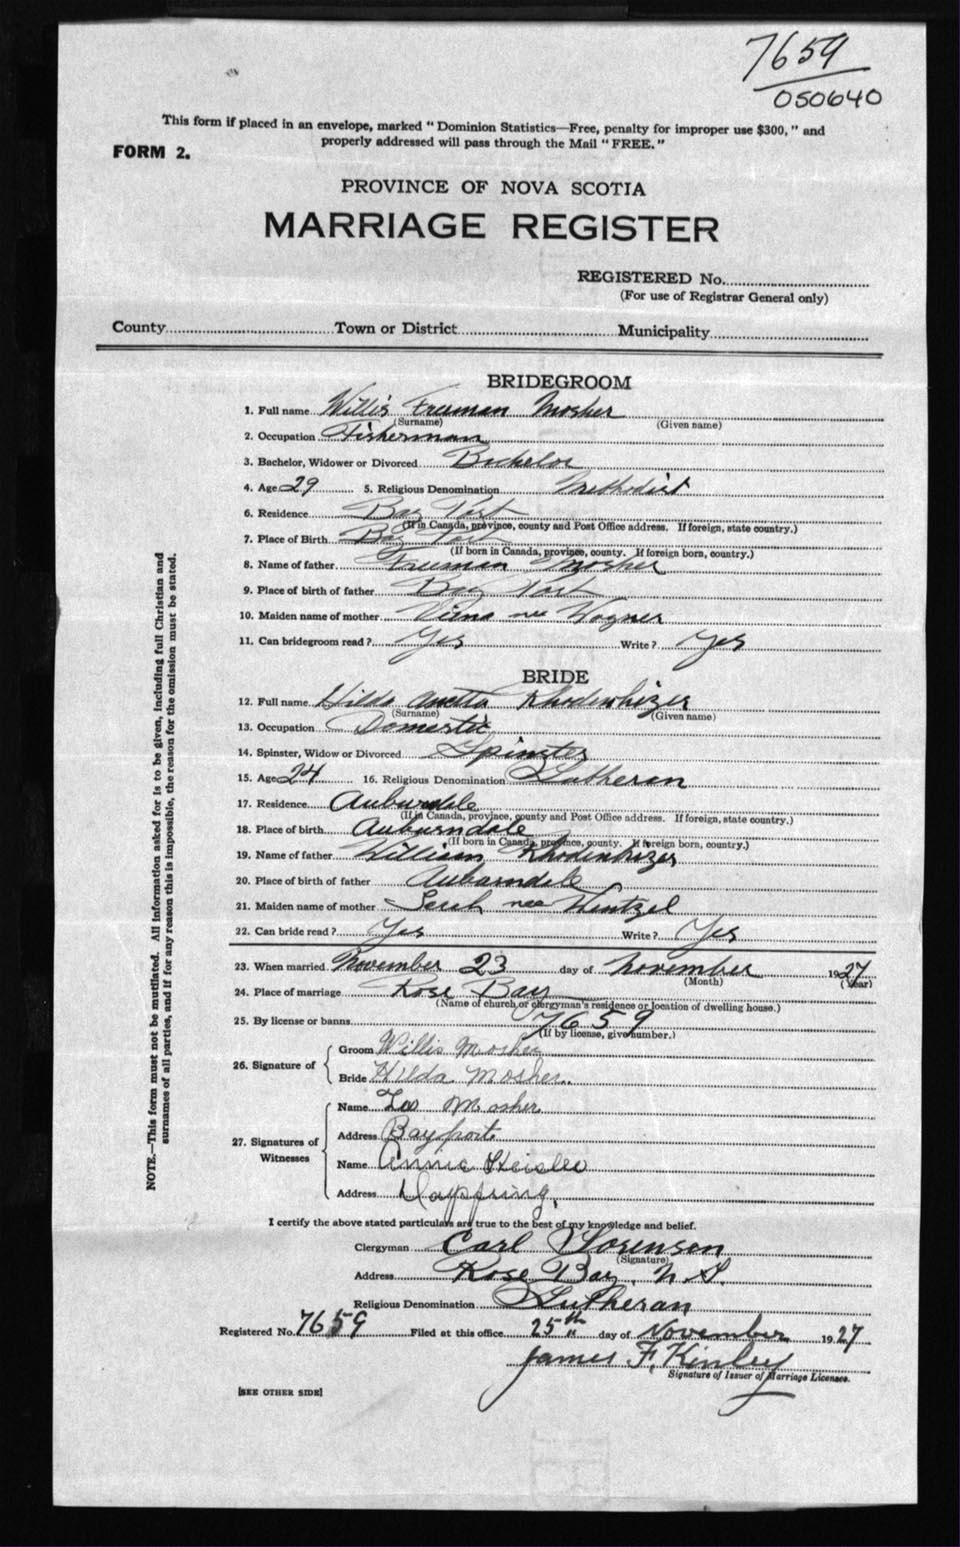 7659
050640
This form if placed in an envelope, marked "Dominion Statistics—Free, penalty for improper use $300," and
properly addressed will pass through the Mail "FREE."
FORM 2.
PROVINCE OF NOVA SCOTIA
MARRIAGE REGISTER
REGISTERED No.
(For use of Registrar General only)
County Town or District Municipality
NOTE.—This form must not be mutilated. All information asked for is to be given, including full Christian and
surnames of all parties, and if for any reason this is impossible, the reason for the omission must be stated.
BRIDEGROOM
1. Full name Willis Freeman Mosher
(Surname) (Given name)
2. Occupation Fisherman
3. Bachelor, Widower or Divorced Bachelor
4. Age 29 5. Religious Denomination Methodist
6. Residence Bay Port
(If in Canada, province, county and Post Office address. If foreign, state country.)
7. Place of Birth Bay Port
(If born in Canada, province, county. If foreign born, country.)
8. Name of father Freeman Mosher
9. Place of birth of father Bay Port
10. Maiden name of mother nee Wagner
11. Can bridegroom read? Yes Write? Yes
BRIDE
12. Full name Hilda Rhodenhizer
(Surname) (Given name)
13. Occupation Domestic
14. Spinster, Widow or Divorced Spinster
15. Age 24 16. Religious Denomination Lutheran
17. Residence Auburndale
(If in Canada, province, county and Post Office address. If foreign, state country.)
18. Place of birth Auburndale
(If born in Canada, province, county. If foreign born, country.)
19. Name of father William Rhodenhizer
20. Place of birth of father Auburndale
21. Maiden name of mother Sarah nee Wentzel
22. Can bride read? Yes Write? Yes
23. When married November 23 day of November 1927
(Month) (Year)
24. Place of marriage Rose Bay
(Name of church or clergyman's residence or location of dwelling house.)
25. By license or banns 7659
(If by license, give number.)
26. Signature of
Groom Willis Mosher
Bride Hilda Mosher.
27. Signatures of
Witnesses
Name Leo Mosher
Address Bayport.
Name Annie Heisler
Address Dayspring,
I certify the above stated particulars are true to the best of my knowledge and belief.
Clergyman Carl Sorensen
(Signature)
Address Rose Bay, N.S.
Religious Denomination Lutheran
Registered No. 7659 Filed at this office 25th day of November 1927
James F. Kinley
Signature of Issuer of Marriage Licenses.
[SEE OTHER SIDE]